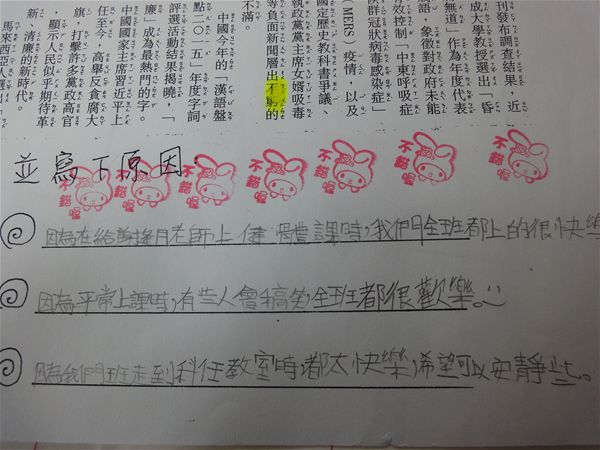 刊發布調查結果，近
成大學教授選出「昏
無道」作為年度代表
語，象徵對政府未能
效控制「中東呼吸症
候群冠狀病毒感染症」
（MERS）疫情，以及
國定歷史教科書爭議、
執政黨黨主席女婿吸毒
等負面新聞層出不窮的
不滿。
中國今年的「漢語盤
點二○一五」年度字詞
評選活動結果揭曉，「
廉」成為最熱門的字。
中國國家主席習近平上
任至今，高舉反貪腐大
旗，打擊許多黨政高官
，顯示人民似乎期待革
新、清廉的新時代。
馬來西亞人選「
並寫下原因
不錯喔
不錯喔
不錯喔
不錯喔
不錯喔
不錯喔
不錯喔
因為在給 老師上健 課時，我們全班都上的很快樂
因為平常上課時，有些人會搞笑，全班都很歡樂。
因為我們班走到科任教室時都太快樂，希望可以安靜些。